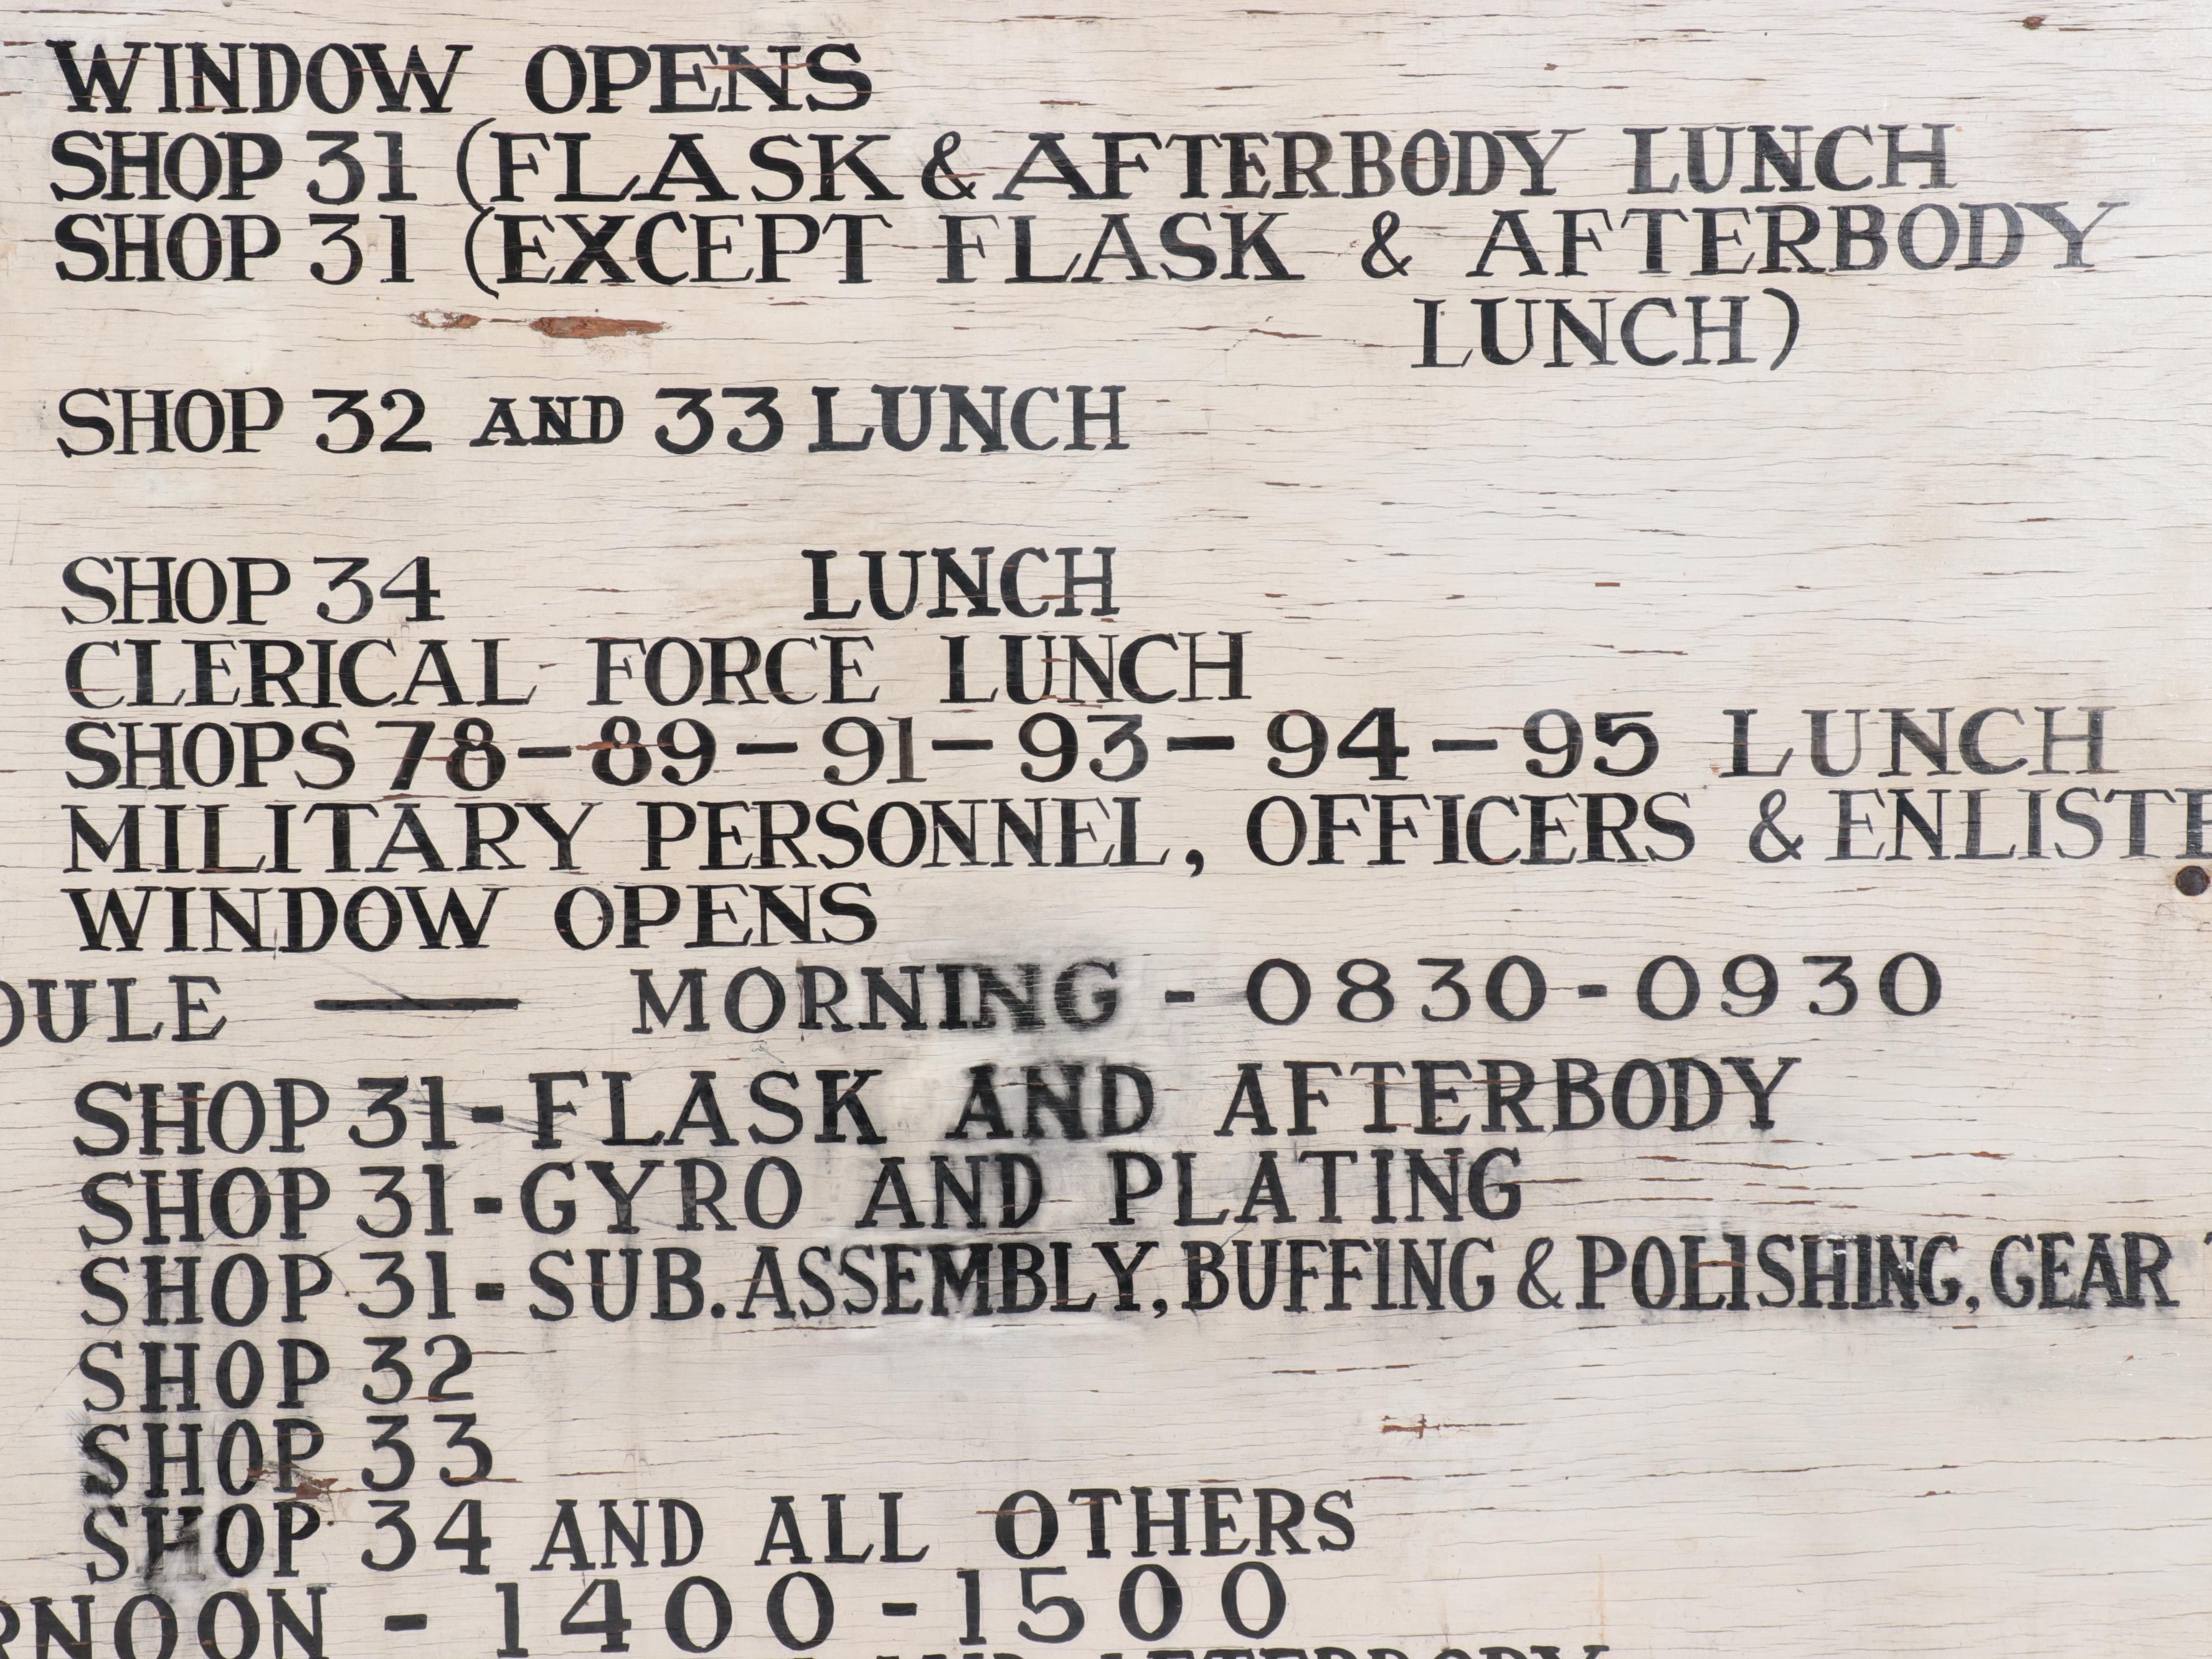 WINDOW OPENS
SHOP 31 (FLASK & AFTERBODY LUNCH
SHOP 31 (EXCEPT FLASK & AFTERBODY
LUNCH)
SHOP 32 AND 33 LUNCH
SHOP 34 LUNCH
CLERICAL FORCE LUNCH
SHOPS 78-89-91-93-94-95 LUNCH
MILITARY PERSONNEL, OFFICERS & ENLISTE
WINDOW OPENS
DULE — MORNING - 0830-0930
SHOP 31-FLASK AND AFTERBODY
SHOP 31-GYRO AND PLATING
SHOP 31-SUB. ASSEMBLY, BUFFING & POLISHING, GEAR
SHOP 32
SHOP 33
SHOP 34 AND ALL OTHERS
RNOON - 1400-1500
AND AFTERBODY